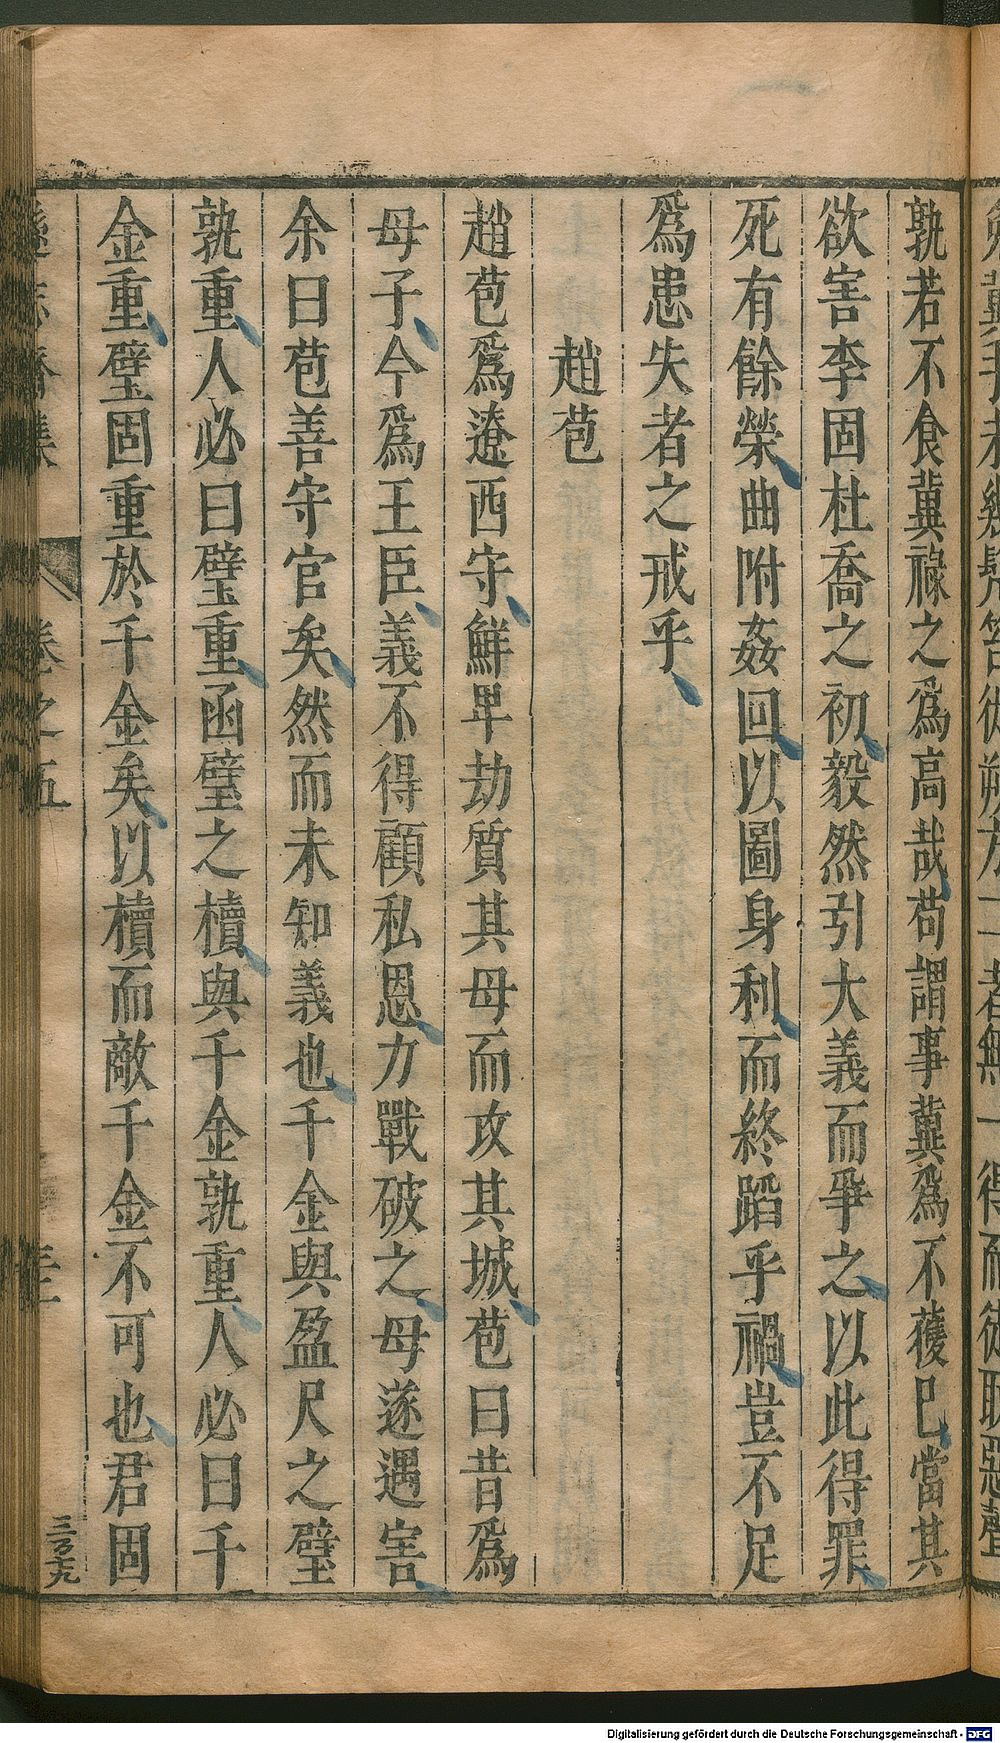 孰若不食冀祿之爲高哉苟謂事冀爲不獲巳當其
欲害李固杜喬之初毅然引大義而爭之以此得罪
死有餘榮曲附姦回以圖身利而終蹈乎禍豈不足
爲患失者之戒乎
趙苞
趙苞爲遼西守鮮卑劫質其母而攻其城苞曰昔爲
母子今爲王臣義不得顧私恩力戰破之母遂遇害
余曰苞善守官矣然而未知義也千金與盈尺之璧
孰重人必曰璧重函璧之櫝與千金孰重人必曰千
金重璧固重於千金矣以櫝而敵千金不可也君固
卷之五
Digitalisierung gefördert durch die Deutsche Forschungsgemeinschaft - DFG